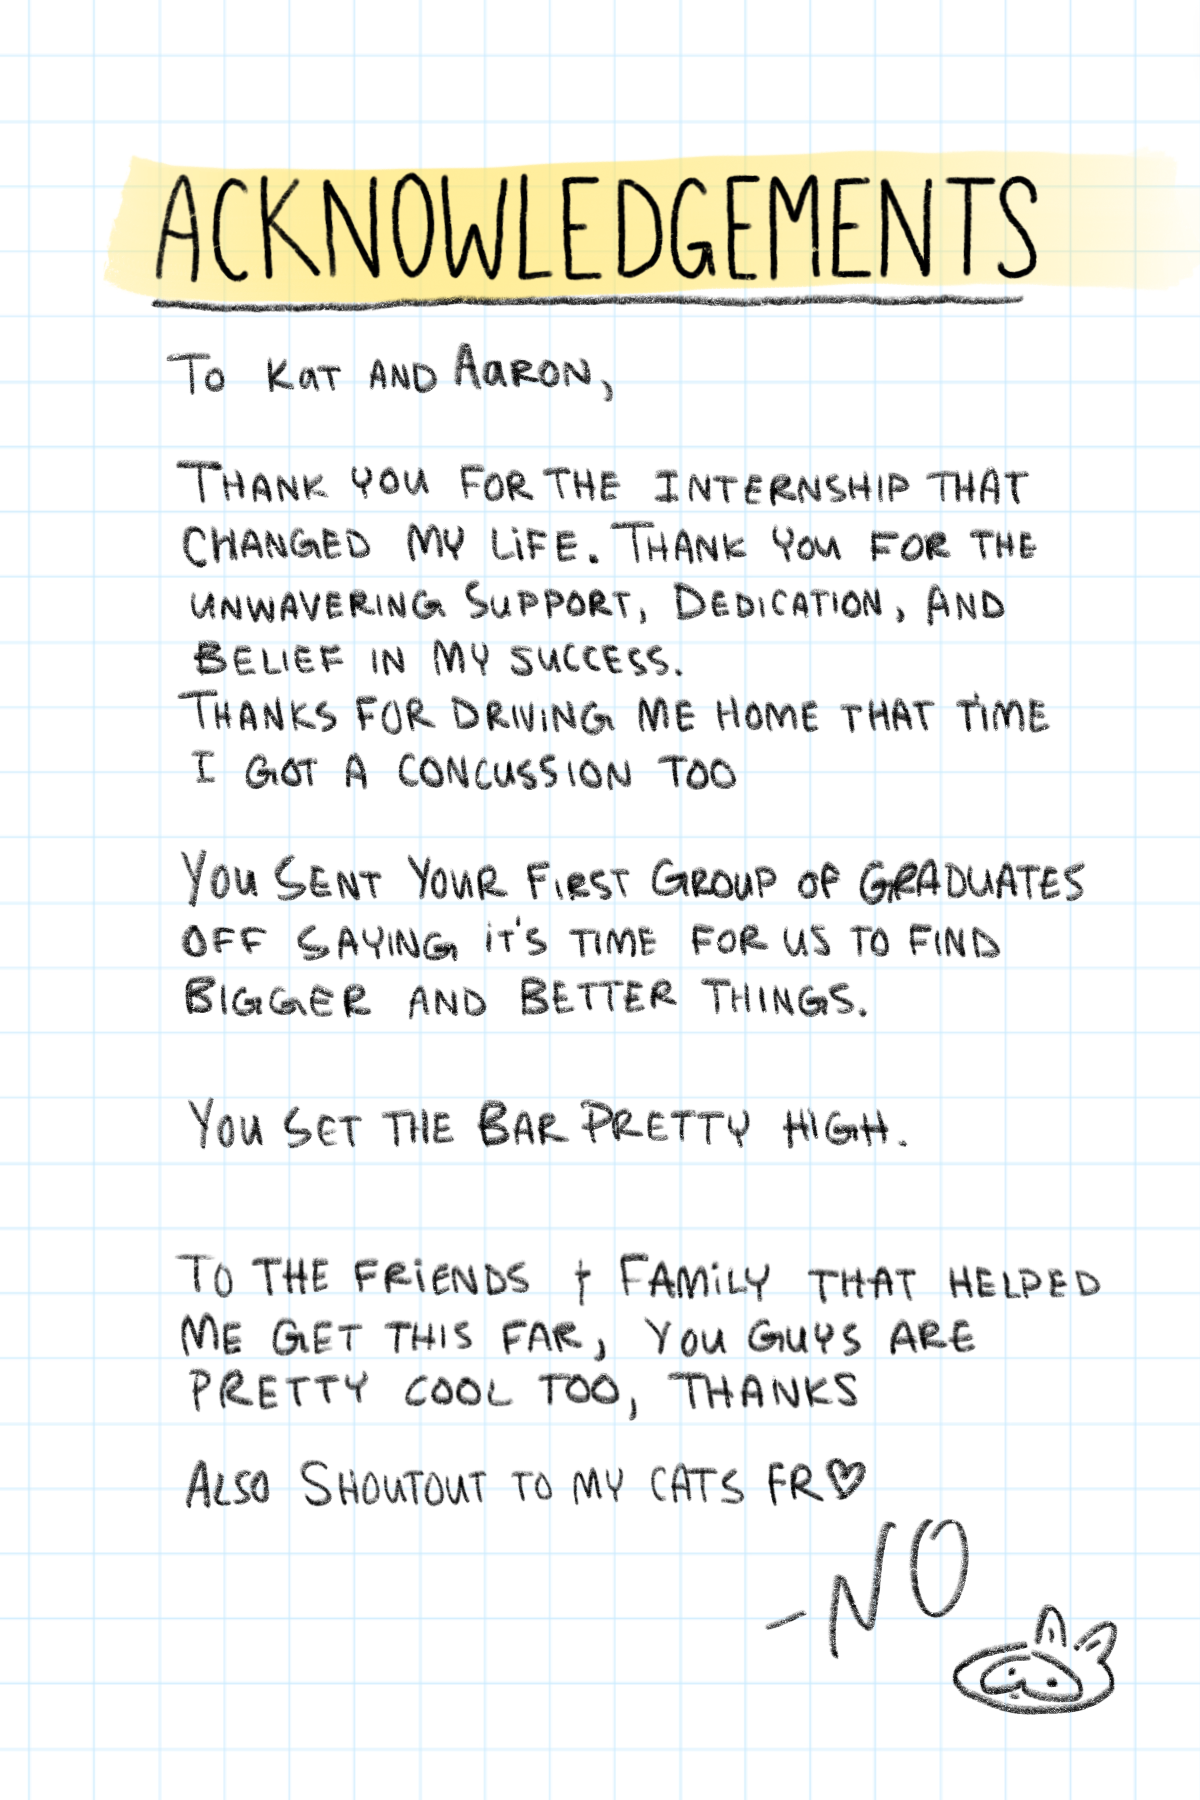 ACKNOWLEDGEMENTS
To Kat and Aaron,
Thank you for the internship that
changed my life. Thank you for the
unwavering support, dedication, and
belief in my success.
Thanks for driving me home that time
I got a concussion too
You sent your first group of graduates
off saying it's time for us to find
bigger and better things.
You set the bar pretty high.
To the friends + family that helped
me get this far, you guys are
pretty cool too, thanks
Also shoutout to my cats fr♡
-NO